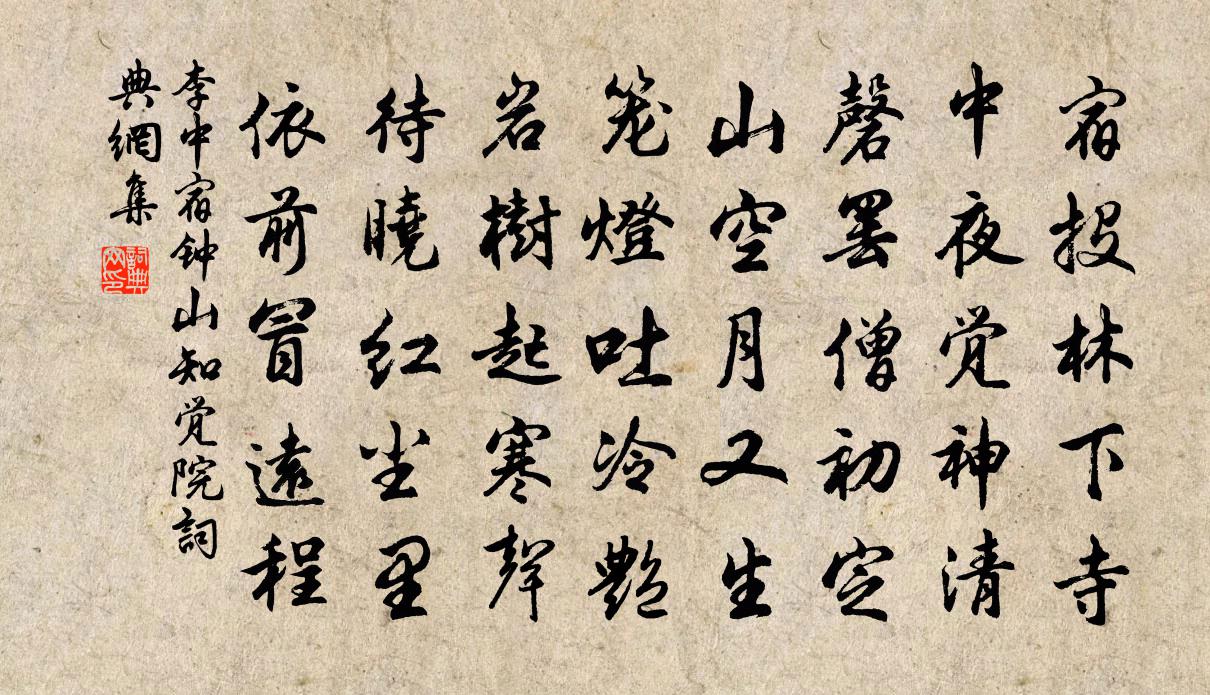 宿投林下寺
中夜觉神清
磬罢僧初定
山空月又生
笼燈吐冷艷
岩樹起寒聲
待曉红尘里
依前冒遠程
李中宿钟山知觉院詞
典網集
詞典